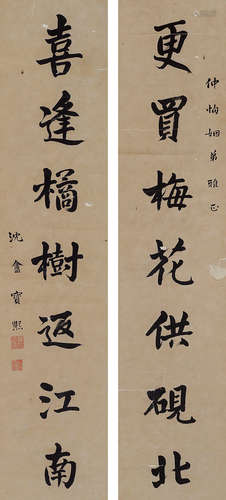 更買梅花供硯北
仲怡姻弟雅正
喜逢橘樹返江南
沈盦寶熙